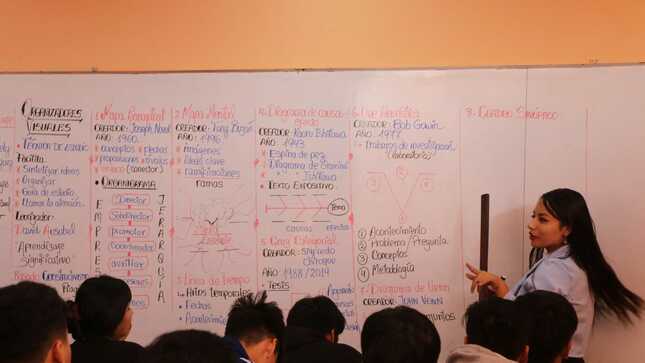 ORGANIZADORES
VISUALES
Facilita
Sintetizar ideas
Organizar
Guia de estudio
Llamar la atención
David Ausubel
"Aprendizaje
Significativo"
Basado Constructivismo
1. Mapa Conceptual
CREADOR: Joseph Novak
AÑO: 1960
conceptos
proposiciones
(conector)
ORGANIGRAMA
EMPRESA
Director
Subdirector
Promotor
Coordinador
auxiliar
JERARQUÍA
2. Mapa Mental
CREADOR: Tony Buzan
AÑO: 1996
imágenes
ideas clave
ramificaciones
ramas
3. Linea de tiempo
Años temporales
Fechas
Acontecimiento
4. Diagrama de causa
efecto
CREADOR: Kaoru Ishikawa
AÑO: 1943
Espina de pez
Diagrama de
" " Ishikawa
TEXTO Expositivo
Tema
causas
efectos
CREADOR:
AÑO: 1988/2019
Tesis
6. Uve Heurística
CREADOR: Bob Gowin
AÑO: 1977
trabajos de investigación
(laboratorio)
3
4
2
1
① Acontecimiento
② Problema / Pregunta
③ Conceptos
④ Metodología
7. Diagrama de Venn
CREADOR: John Venn
8. CUADRO SINÓPTICO